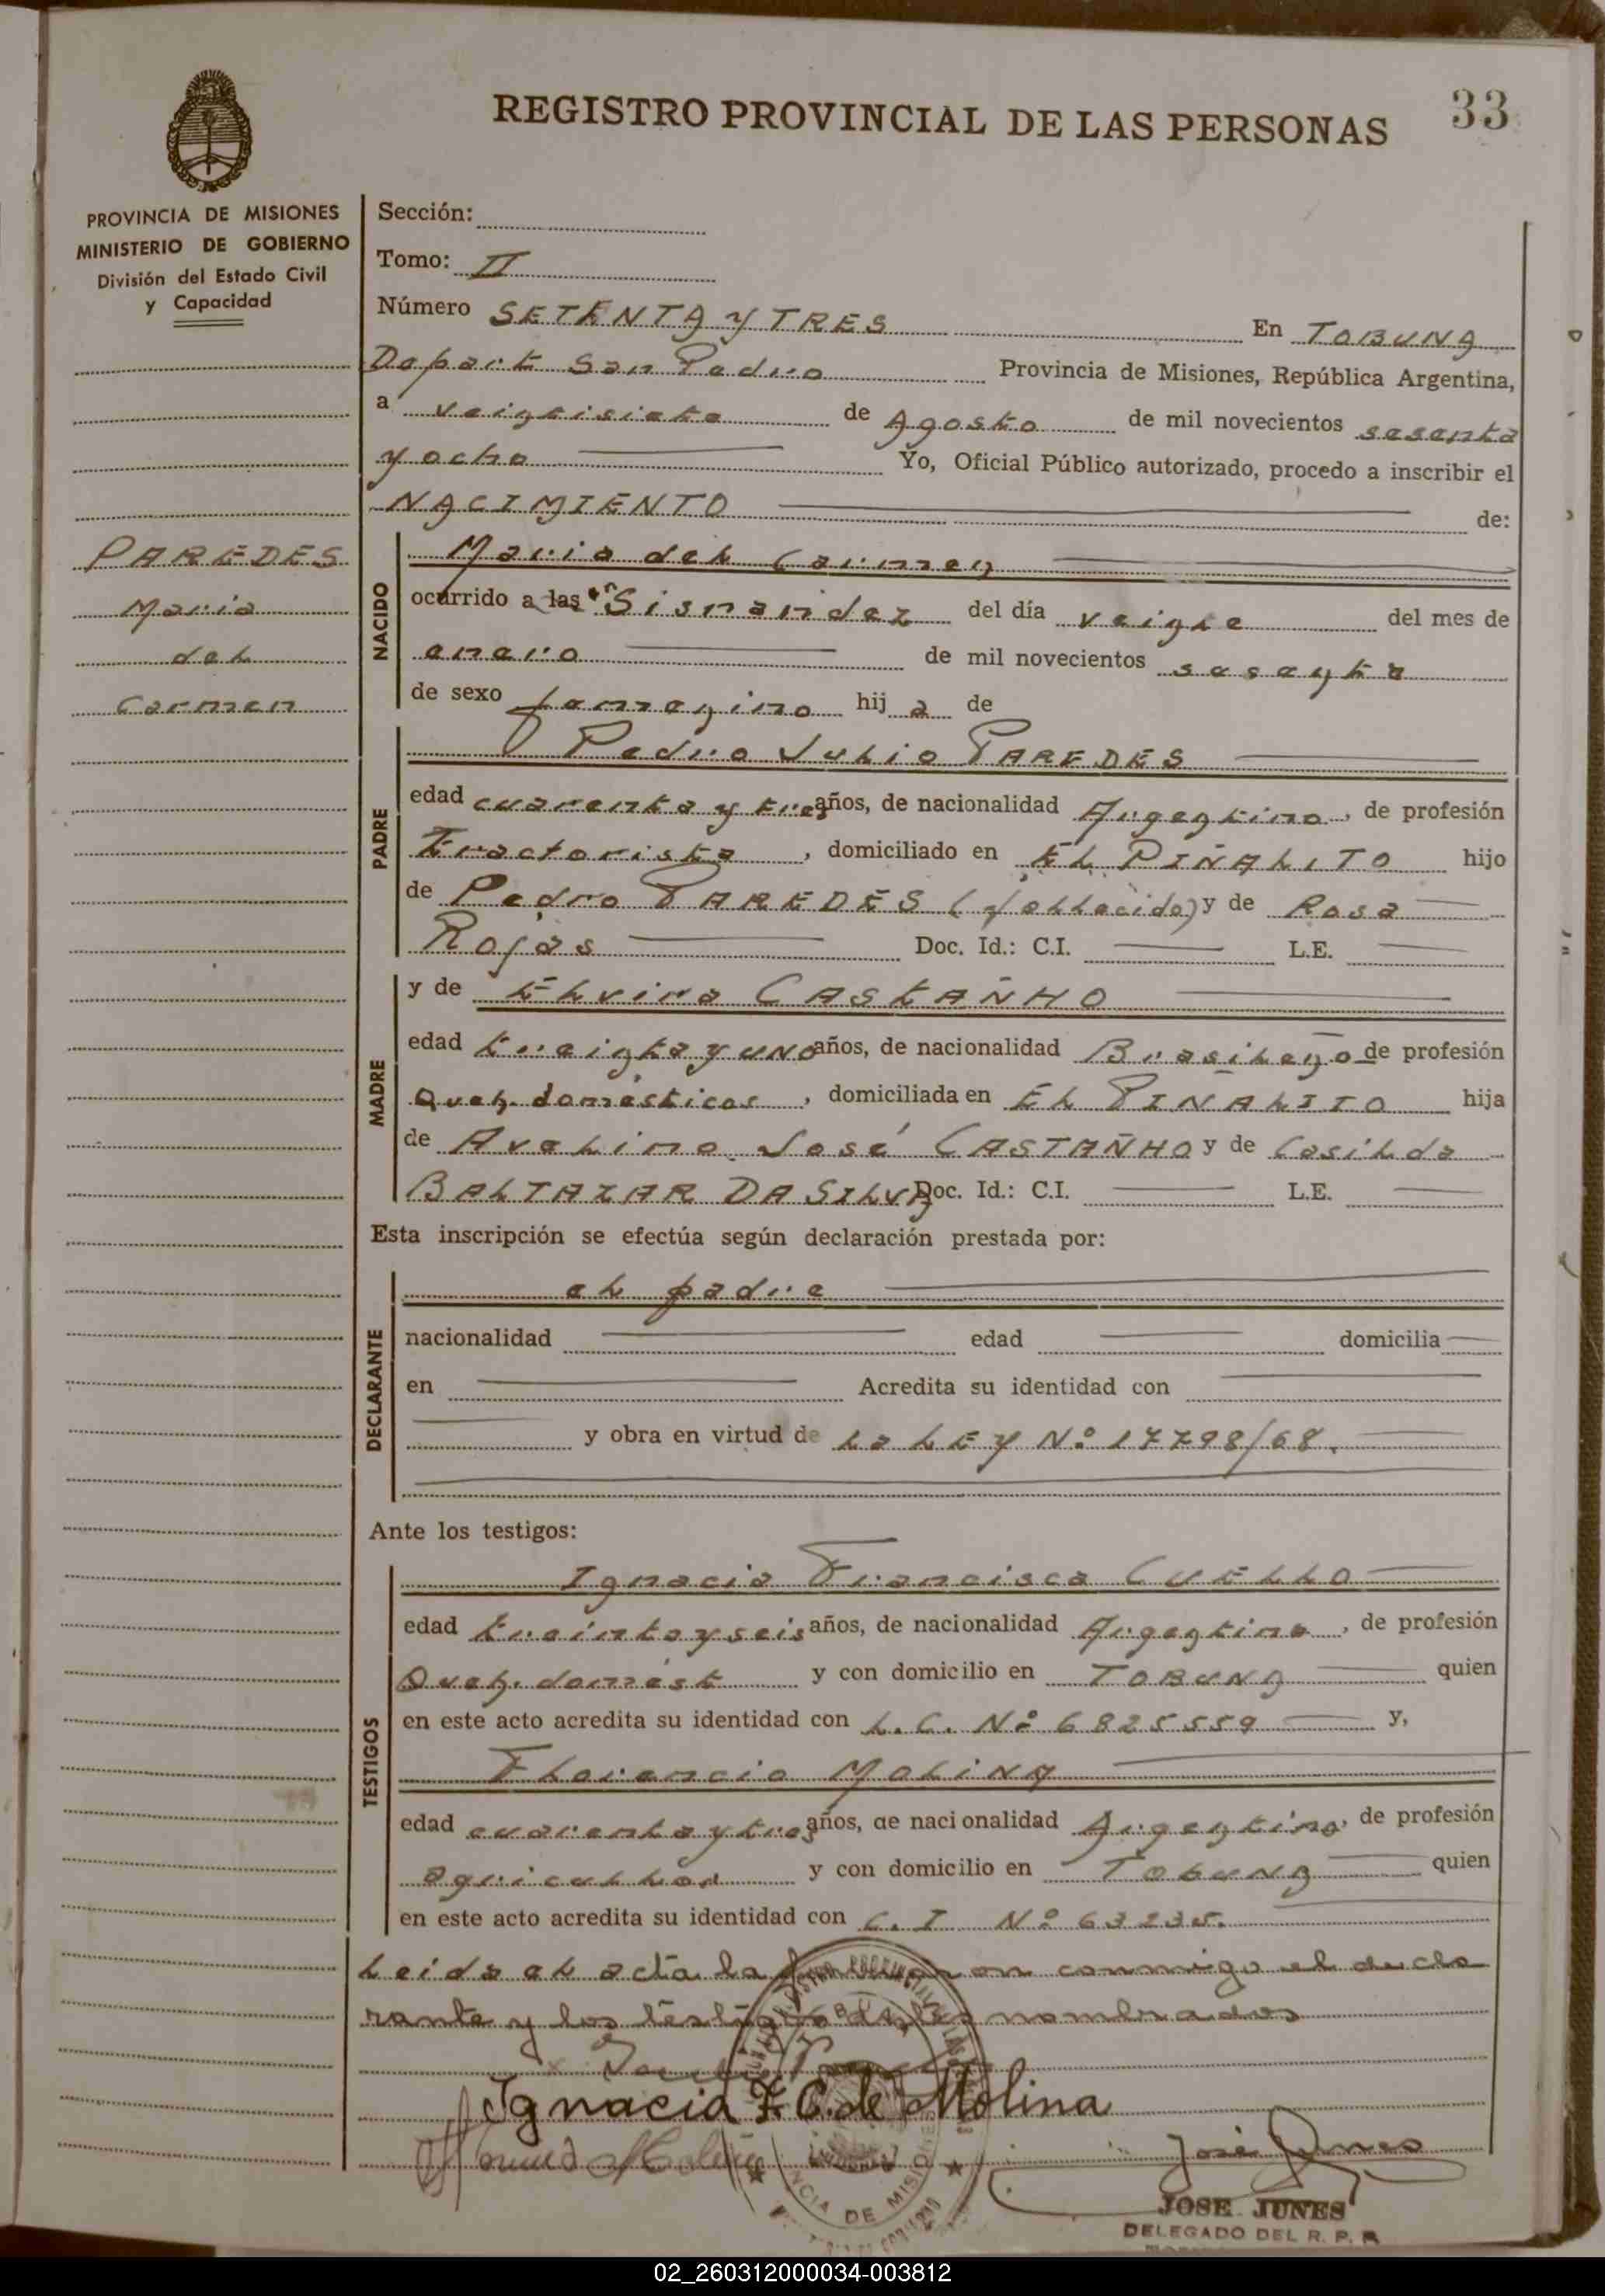 33
REGISTRO PROVINCIAL DE LAS PERSONAS
PROVINCIA DE MISIONES
MINISTERIO DE GOBIERNO
División del Estado Civil
y Capacidad
PAREDES
Maria
del
Carmen
Sección:
Tomo: II
Número SETENTA Y TRES En TOBUNA
Depart San Pedro Provincia de Misiones, República Argentina,
a veintisiete de Agosto de mil novecientos sesenta
y ocho Yo, Oficial Público autorizado, procedo a inscribir el
NACIMIENTO de:
NACIDO
Maria del Carmen
ocurrido a las del día veinte del mes de
enero de mil novecientos sesenta
de sexo femenino hij a de
PADRE
Pedro Julio PAREDES
edad cuarenta y tres años, de nacionalidad Argentino, de profesión
Tractorista, domiciliado en EL PIÑALITO hijo
de Pedro PAREDES (fallecido) y de Rosa
Rojas Doc. Id.: C.I. L.E.
MADRE
y de Elvira CASTAÑHO
edad treinta y uno años, de nacionalidad Brasileño de profesión
Queh. domésticos, domiciliada en EL PIÑALITO hija
de Avelino José CASTAÑHO y de Casilda
BALTAZAR DA SILVA Doc. Id.: C.I. L.E.
Esta inscripción se efectúa según declaración prestada por:
DECLARANTE
el padre
nacionalidad edad domicilia
en Acredita su identidad con
y obra en virtud de la LEY Nº 17798/68.
Ante los testigos:
TESTIGOS
Ignacia Francisca CUELLO
edad treinta y seis años, de nacionalidad Argentina, de profesión
Queh. domést y con domicilio en TOBUNA quien
en este acto acredita su identidad con L.C. Nº 6825559 y,
Florencio MOLINA
edad cuarenta y tres años, de nacionalidad Argentino, de profesión
agricultor y con domicilio en TOBUNA quien
en este acto acredita su identidad con C.I Nº 63235.
Leida el acta la firmaron conmigo el decla
rante y los testigos antes nombrados
Ignacia F. C. de Molina
José Junes
JOSE JUNES
DELEGADO DEL R. P. P.
NCIA DE MISIONES
02_260312000034-003812